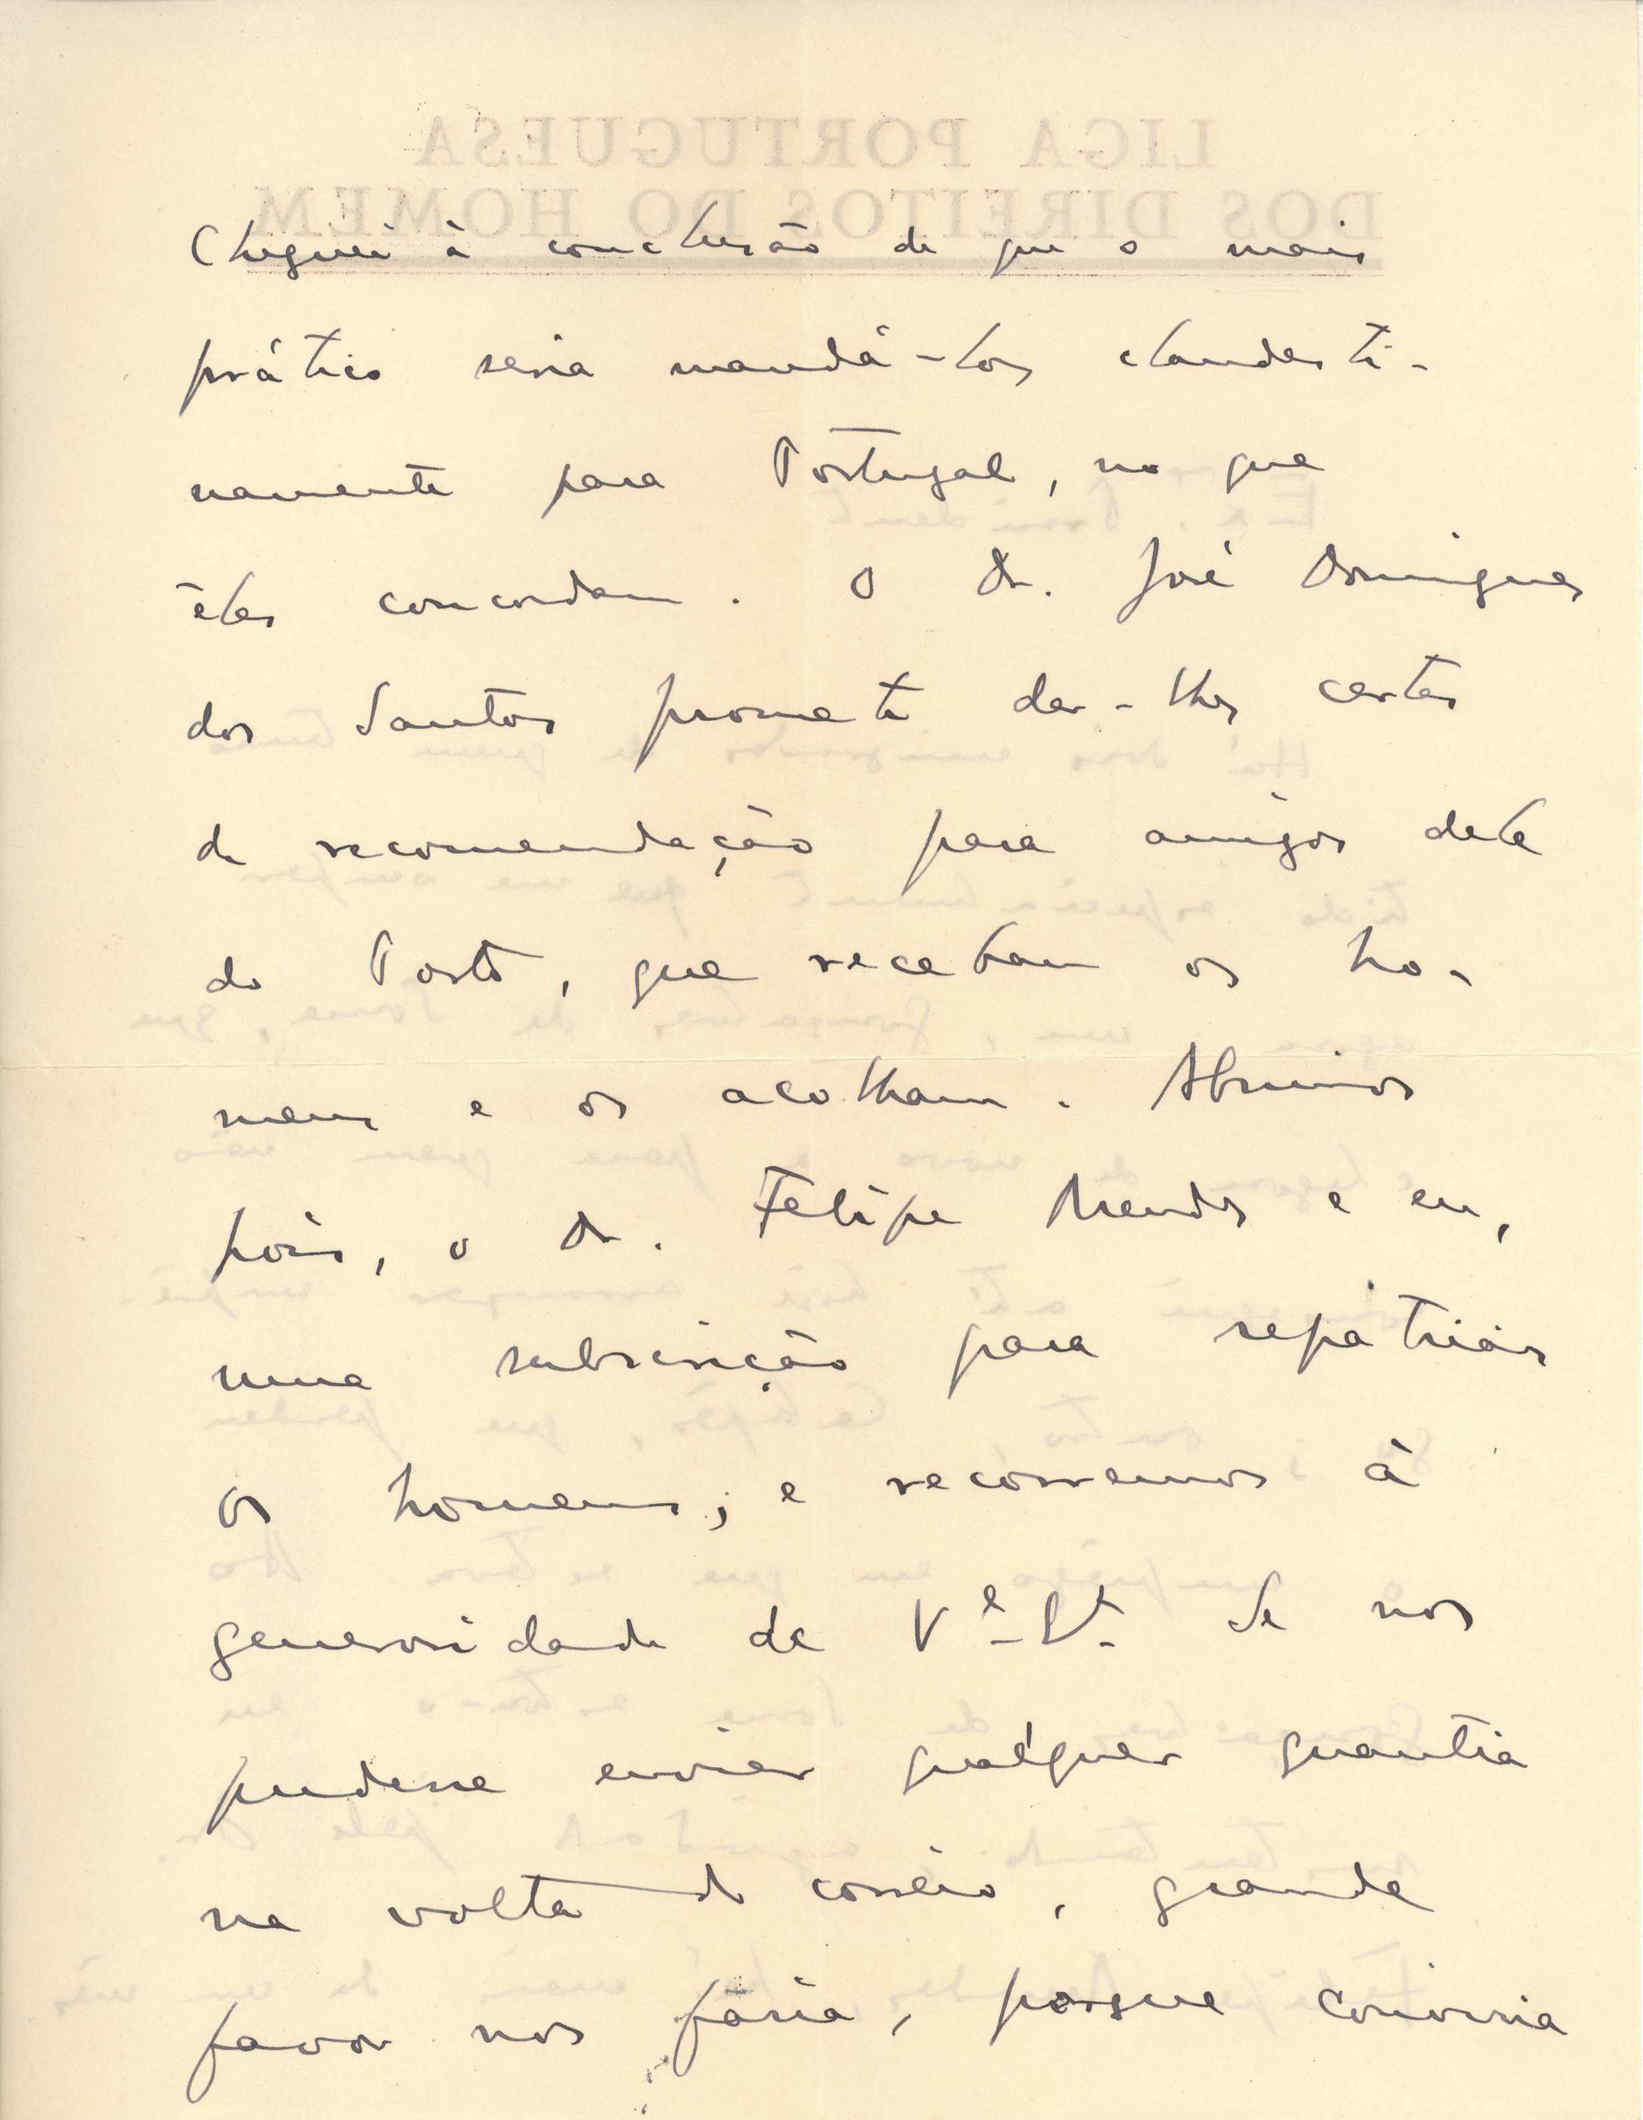 Cheguei à conclusão de que o mais
prático seria mandá-los clandesti-
namente para Portugal, no que
êles concordam. O Dr. José Domingues
dos Santos promete dar-lhes cartas
de recomendação para amigos dele
do Porto, que recebam os ho-
mens e os acolham. Abrimos
pois, o Dr. Felipe Mendes e eu,
uma subscrição para repatriar
os homens; e recorremos à
generosidade de V.ª Ex.ª Se nos
pudesse enviar qualquer quantia
na volta do correio, grande
favor nos faria, porque conviria